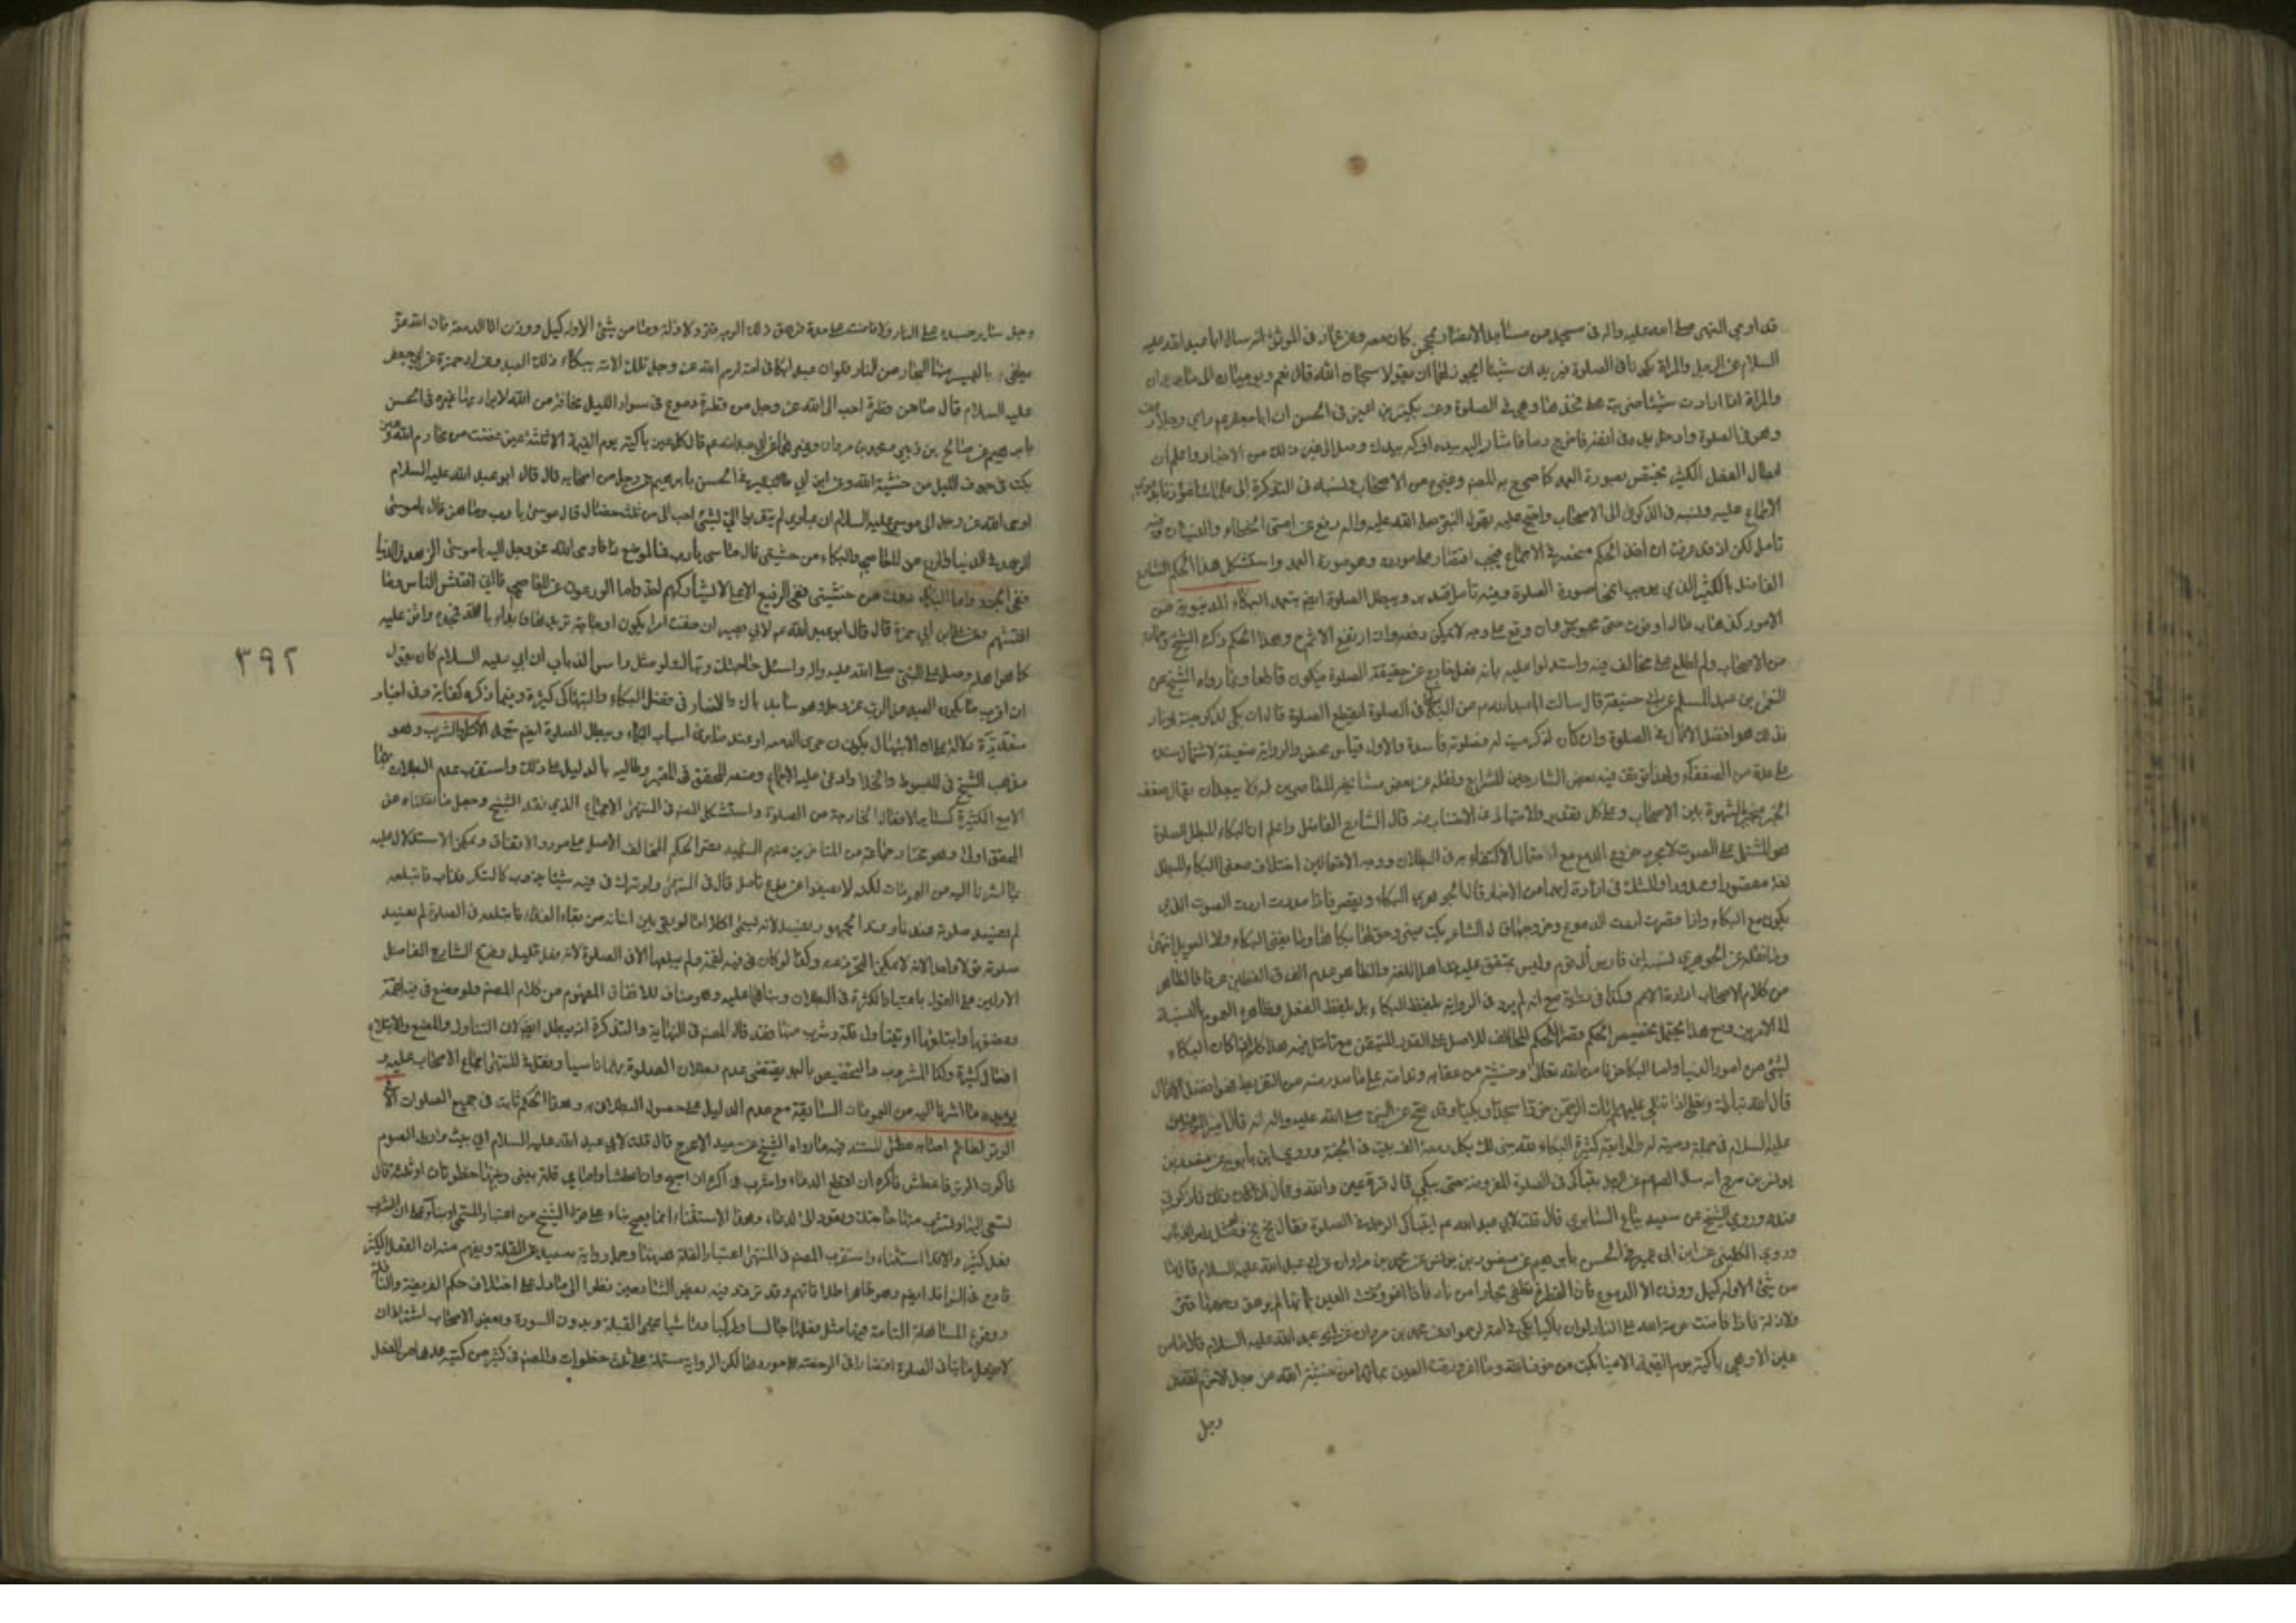 قد اومى النبي صلى الله عليه واله في مسجد من مساجد الانصار بمحجن كان معه وعن عمار في الموثق انه سال ابا عبد الله عليه
السلام عن الرجل والمراة يكونان في الصلوة فيريدان شيئا ايجوز لهما ان يقولا سبحان الله قال نعم ويوميان الى ما يريدان
والمراة اذا ارادت شيئا ضربت على فخذها وهي في الصلوة وعن بكير بن اعين في الحسن ان ابا جعفر عم راى رجلا رعف
وهو في الصلوة وادخل يده في انفه فاخرج دما فاشار اليه بيده افركه بيدك وصل الى غير ذلك من الاخبار واعلم ان
ابطال الفعل الكثير مختص بصورة العمد كما صرح به المصنف وغيره من الاصحاب ونسبه في التذكرة الى علمائنا
الاجماع عليه ونسبه في الذكرى الى الاصحاب واحتج عليه بقول النبي صلى الله عليه واله رفع عن امتي الخطاء والنسيان وفيه
تامل لكن اذ قد عرفت ان اصل الحكم مستنده الاجماع فيجب اقتصاره على مورده وهو صورة العمد واستشكل هذا الحكم الشارح
الفاضل بالكثير الذي يوجب انمحاء صورة الصلوة وفيه تامل ويبطل الصلوة ايضا بتعمد البكاء للدنيوية من
الامور كذهاب مال او فوت محبوب وان وقع على وجه لا يمكن دفعه وان ارتفع الاثم وهذا الحكم ذكره الشيخ وجماعة
من الاصحاب ولم اطلع على مخالف فيه واستدلوا عليه بانه فعل خارج عن حقيقة الصلوة فيكون قاطعا وبما رواه الشيخ عن
النعمن بن عبد السلم عن ابي حنيفة قال سالت ابا عبد الله عم عن البكاء في الصلوة ايقطع الصلوة قال ان بكى لذكر جنة او نار
فذلك هو افضل الاعمال في الصلوة وان كان لذكر ميت له فصلوته فاسدة والاول قياس محض والرواية ضعيفة لاشتمال سنده
على عدة من الضعفاء ولهذا توقف فيه بعض الشارحين للشرايع ونقله عن بعض مشايخه المعاصرين له ويمكن ان يقال ضعف
الخبر منجبر بالشهرة بين الاصحاب وعلى كل تقدير والاحتياط في الاجتناب منه قال الشارح الفاضل واعلم ان البكاء المبطل للصلوة
هو المشتمل على الصوت لا مجرد خروج الدمع مع احتمال الاكتفاء به في البطلان ووجه الاحتمالين اختلاف معنى البكاء المبطل
لغة مقصورا وممدودا والشك في ارادة ايهما من الاخبار قال الجوهري البكاء يمد ويقصر فاذا مددت اردت الصوت الذي
يكون مع البكاء واذا قصرت اردت الدموع وخروجها قال الشاعر بكت عيني وحق لها بكاها وما يغني البكاء ولا العويل انتهى
وما نقله عن الجوهري نسبه ابن فارس الى قوم وليس بمتفق عليه عند اهل اللغة والظاهر عدم الفرق بين اللفظين عرفا فالظاهر
من كلام الاصحاب ارادة الاعم وكذا في الرواية مع انه لم يرد في الرواية بلفظ البكاء بل بلفظ الفعل وظاهره العموم بالنسبة
الى الامرين ومع هذا يحتمل تخصيص الحكم قصرا للحكم المخالف للاصل على القدر المتيقن مع تامل فيه هذا كله اذا كان البكاء
لشئ من امور الدنيا واما البكاء خوفا من الله تعالى وخشية من عقابه وندامة على ما صدر منه من التفريط فهو افضل الاعمال
قال الله تبارك وتعالى اذا تتلى عليهم ايات الرحمن خروا سجدا وبكيا وقد صح عن النبي صلى الله عليه واله انه قال لامير المؤمنين
عليه السلام في جملة وصيته له والرابعة كثرة البكاء لله يبنى لك بكل دمعة الف بيت في الجنة وروى ابن بابويه عن منصور بن
يونس بن بزرج انه سال الصادق عن الرجل يتباكى في الصلوة المفروضة حتى يبكي قال قرة عين والله وقال اذا كان ذلك فاذكرني
عنده وروى الشيخ عن سعيد بياع السابري قال قلت لابي عبد الله عم ايتباكى الرجل في الصلوة فقال بخ بخ ولو مثل راس الذباب
وروى الكليني عن ابن ابي عمير في الحسن بابرهيم عن منصور بن يونس عن محمد بن مروان عن ابي عبد الله عليه السلام قال ما
من شئ الا وله كيل ووزن الا الدموع فان القطرة تطفي بحارا من نار فاذا اغرورقت العين بمائها لم يرهق وجهها قتر
ولا ذلة فاذا فاضت حرمه الله على النار ولو ان باكيا بكى في امة لرحموا وعن محمد بن مروان عن ابي عبد الله عليه السلام قال ما من
عين الا وهي باكية يوم القيمة الا عينا بكت من خوف الله وما اغرورقت العين بمائها من خشية الله عز وجل الا حرم الله عز
وجل
وجل ساير جسده على النار ولا فاضت على خده فرهق ذلك الوجه قتر ولا ذلة وما من شئ الا وله كيل ووزن الا الدمعة فان الله عز
يطفي باليسير منها البحار من النار فلو ان عبدا بكى في امة لرحم الله عز وجل تلك الامة ببكاء ذلك العبد وعن ابي حمزة عن ابي جعفر
عليه السلام قال ما من قطرة احب الى الله عز وجل من قطرة دموع في سواد الليل مخافة من الله لا يراد بها غيره وفي الحسن
بابرهيم عن صالح بن رزين ومحمد بن مروان وغيرهما عن ابي عبد الله عم قال كل عين باكية يوم القيمة الا ثلثة عين غضت عن محارم الله وعين
بكت في جوف الليل من خشية الله وعن ابن ابي عمير في الحسن بابرهيم عن رجل من اصحابه قال قال ابو عبد الله عليه السلام
اوحى الله عز وجل الى موسى عليه السلام ان عبادي لم يتقربوا الي بشئ احب الى من ثلث خصال قال موسى يا رب وما هن قال يا موسى
الزهد في الدنيا والورع عن المعاصي والبكاء من خشيتي قال موسى يا رب فما لمن صنع ذا فاوحى الله عز وجل اليه يا موسى اما الزاهدون في الدنيا
ففي الجنة واما البكاءون من خشيتي ففي الرفيع الاعلى لا يشاركهم احد واما الورعون عن المعاصي فاني افتش الناس ولا
افتشهم وعن علي بن ابي حمزة قال قال ابو عبد الله عم لابي بصير ان خفت امرا يكون او حاجة تريدها فابدا بالله فمجده واثن عليه
كما هو اهله وصل على النبي صلى الله عليه واله واسئل حاجتك وتباك ولو مثل راس الذباب ان ابي عليه السلام كان يقول
ان اقرب ما يكون العبد من الرب عز وجل وهو ساجد باك والاخبار في فضل البكاء والتباكي كثيرة وفيما ذكر كفاية وفي اخبار
متعددة دلالة على ان الابتهال يكون حين جرى الدمعة او عند مشاهدة اسباب البكاء ويبطل الصلوة ايضا تعمد الاكل والشرب وهو
مذهب الشيخ في المبسوط والخلاف وادعى عليه الاجماع ومنعه المحقق في المعتبر وطالبه بالدليل على ذلك واستقرب عدم البطلان بهما
الا مع الكثرة كساير الافعال الخارجة من الصلوة واستشكل المصنف في المنتهى الاجماع الذي نقله الشيخ وجعل ما نقلناه عن
المحقق اولى وهو مختار جماعة من المتاخرين منهم الشهيد قصرا للحكم المخالف للاصل على مورد الاتفاق ويمكن الاستدلال عليه
بما اشرنا اليه من العمومات لكنه لا يصفوا عن نوع تامل قال في المنتهى ولو ترك في فيه شيئا يذوب كالسكر فذاب فابتلعه
لم يفسد صلوته عندنا وعند الجمهور يفسد لانه يسمى اكلا اما لو بقي بين اسنانه من بقاء الغذاء فابتلعه في الصلوة لم يفسد
صلوته قولا واحدا لانه لا يمكن التحرز عنه وكذا لو كان في فيه لقمة ولم يبلعها الا في الصلوة لانه فعل قليل وفرع الشارح الفاضل
الاولين على القول باعتبار الكثرة في البطلان وبناهما عليه وهو مناف للاتفاق المفهوم من كلام المصنف ولو وضع في فيه لقمة
ومضغها وابتلعها او تناول قلة وشرب منها فقد قال المصنف في النهاية والتذكرة انه يبطل ايضا لان التناول والمضغ والابتلاع
افعال كثيرة وكذا المشروب والتخصيص بالعمد يقتضي عدم بطلان الصلوة بهما ناسيا ونقل في المنتهى اجماع الاصحاب عليه و
يؤيده ما اشرنا اليه من العمومات السابقة مع عدم الدليل على حصول البطلان به وهذا الحكم ثابت في جميع الصلوات الا
الوتر لصائم اصابه عطش المستند فيه ما رواه الشيخ عن سعيد الاعرج قال قلت لابي عبد الله عليه السلام اني ابيت واريد الصوم
فاكون في الوتر فاعطش فاكره ان اقطع الدعاء واشرب واكره ان اصبح وانا عطشان وامامي قلة بيني وبينها خطوتان او ثلثة قال
تسعى اليها وتشرب منها حاجتك وتعود الى الدعاء وهذا الاستثناء انما يصح بناء على قول الشيخ من اعتبار المسمى او بناء على ان الشرب
فعل كثير والا فلا استثناء واستقرب المصنف في المنتهى اعتبار القلة ههنا وحمل رواية سعيد على القلة ويفهم منه ان الفعل الكثير
قادح في النوافل ايضا وهو ظاهر اطلاقاتهم وقد تردد فيه بعض الشارحين نظرا الى ما دل على اختلاف حكم الفريضة والنافلة
ووقوع المساهلة التامة فيها مثل فعلها جالسا وراكبا وماشيا على غير القبلة وبدون السورة وبعض الاصحاب اشترط ان
لا يفعل ما ينافي الصلوة اقتصارا في الرخصة على موردها لكن الرواية مشتملة على ثلث خطوات والمصنف في كثير من كتبه عدها من الفعل
٣٩٢